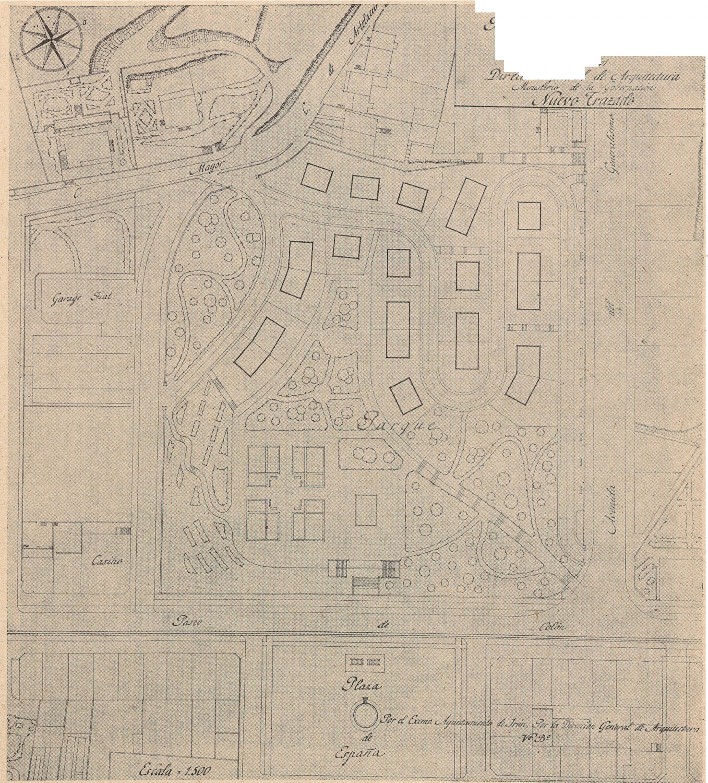 de Arquitectura
Ministerio de la Gobernación
Nuevo Trazado
C. Mayor
Garage Seat
Parque
Avenida del Generalísimo
Casino
Paseo de Colón
Plaza
de
España
Por el Excmo Ayuntamiento de Irún. Por la Dirección General de Arquitectura
Vº Bº
Escala = 1:500